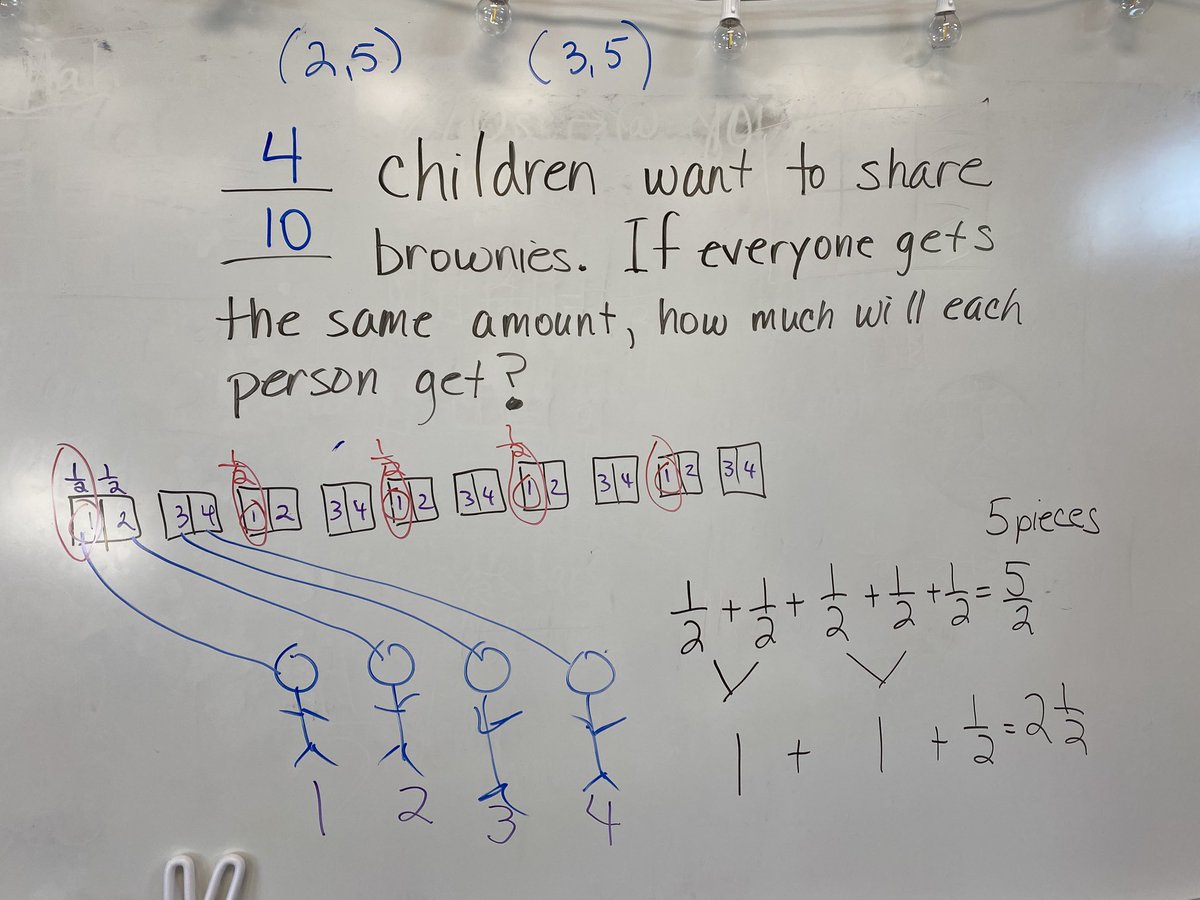 (2,5) (3,5)
4 children want to share
10 brownies. If everyone gets
the same amount, how much will each
person get?
1/2 1/2 1/2 1/2 1/2
1 2 3 4 1 2 3 4 1 2 3 4 1 2 3 4 1 2 3 4
5 pieces
1/2 + 1/2 + 1/2 + 1/2 + 1/2 = 5/2
1 + 1 + 1/2 = 2 1/2
1 2 3 4